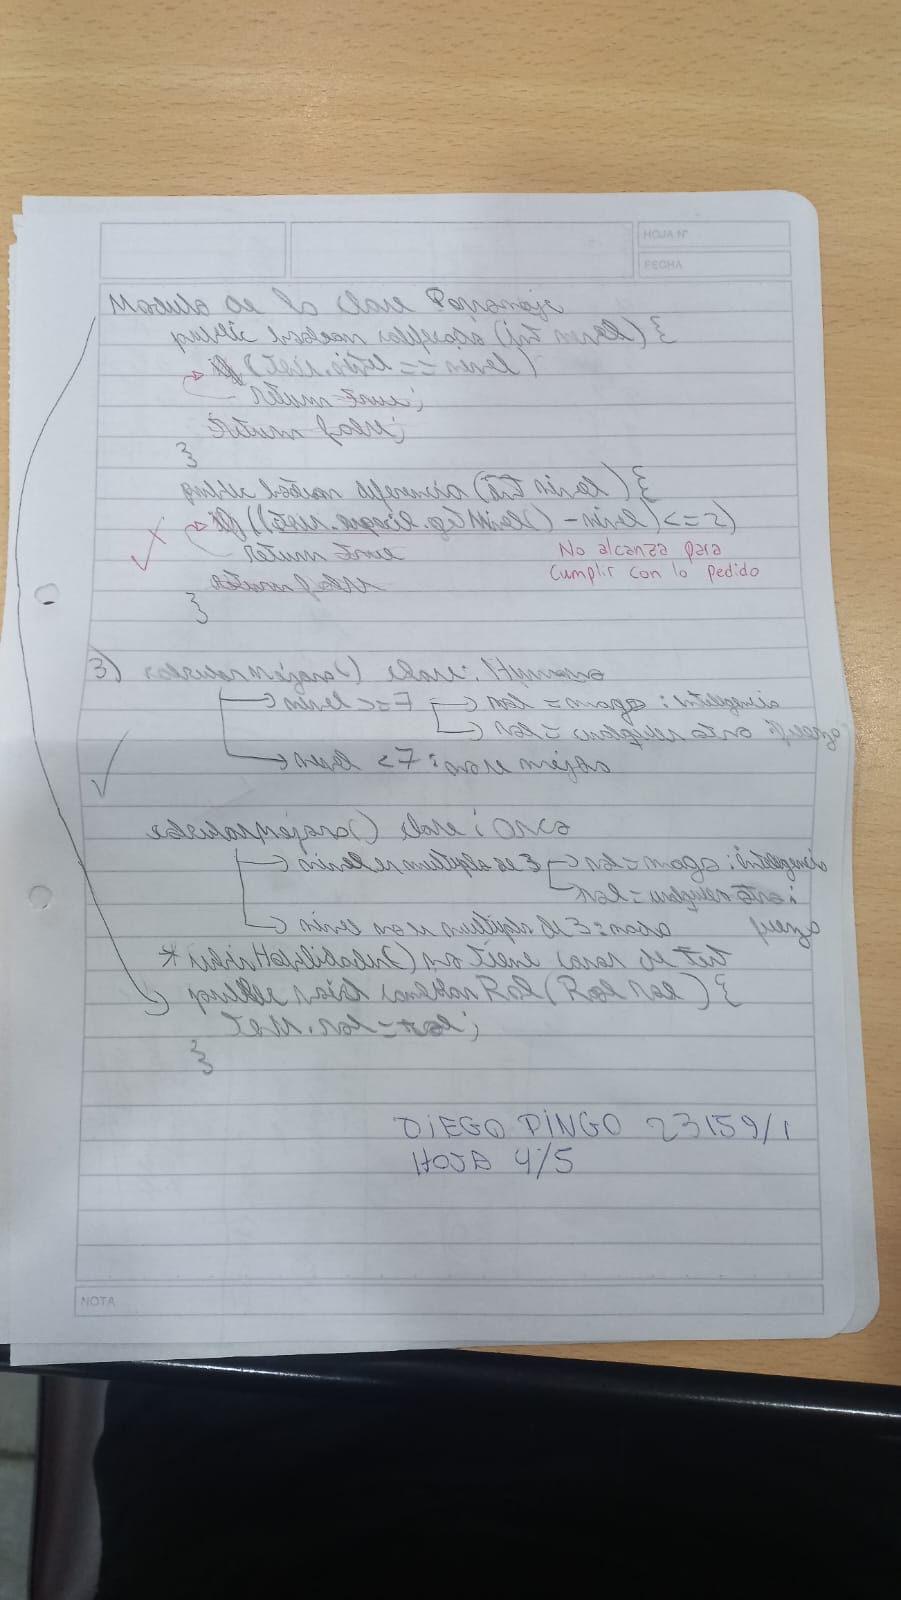 HOJA N°
FECHA
Modulo de la clase Personaje
public boolean (int nivel) {
(this.nivel == nivel)
return true;
return false;
}
public boolean diferencia (int nivel) {
if ((this. .getNivel() - nivel) <= 2)
return true
No alcanza para
cumplir con lo pedido
return false
}
3) calcularMejora() clase: Humano
nivel >= 7 rol = mago : inteligencia
rol = cualquier otro fuerza
nivel < 7 : no se mejora
calcularMejora() clase : Orco
nivel es multiplo de 3 rol = mago : inteligencia
rol = cualquier otro :
nivel no es multiplo de 3 = nada fuerza
* subirHabilidades() no tiene casos de test
public void cambiarRol(Rol rol) {
this.rol = rol;
}
DIEGO PINGO 23159/1
HOJA 4/5
NOTA